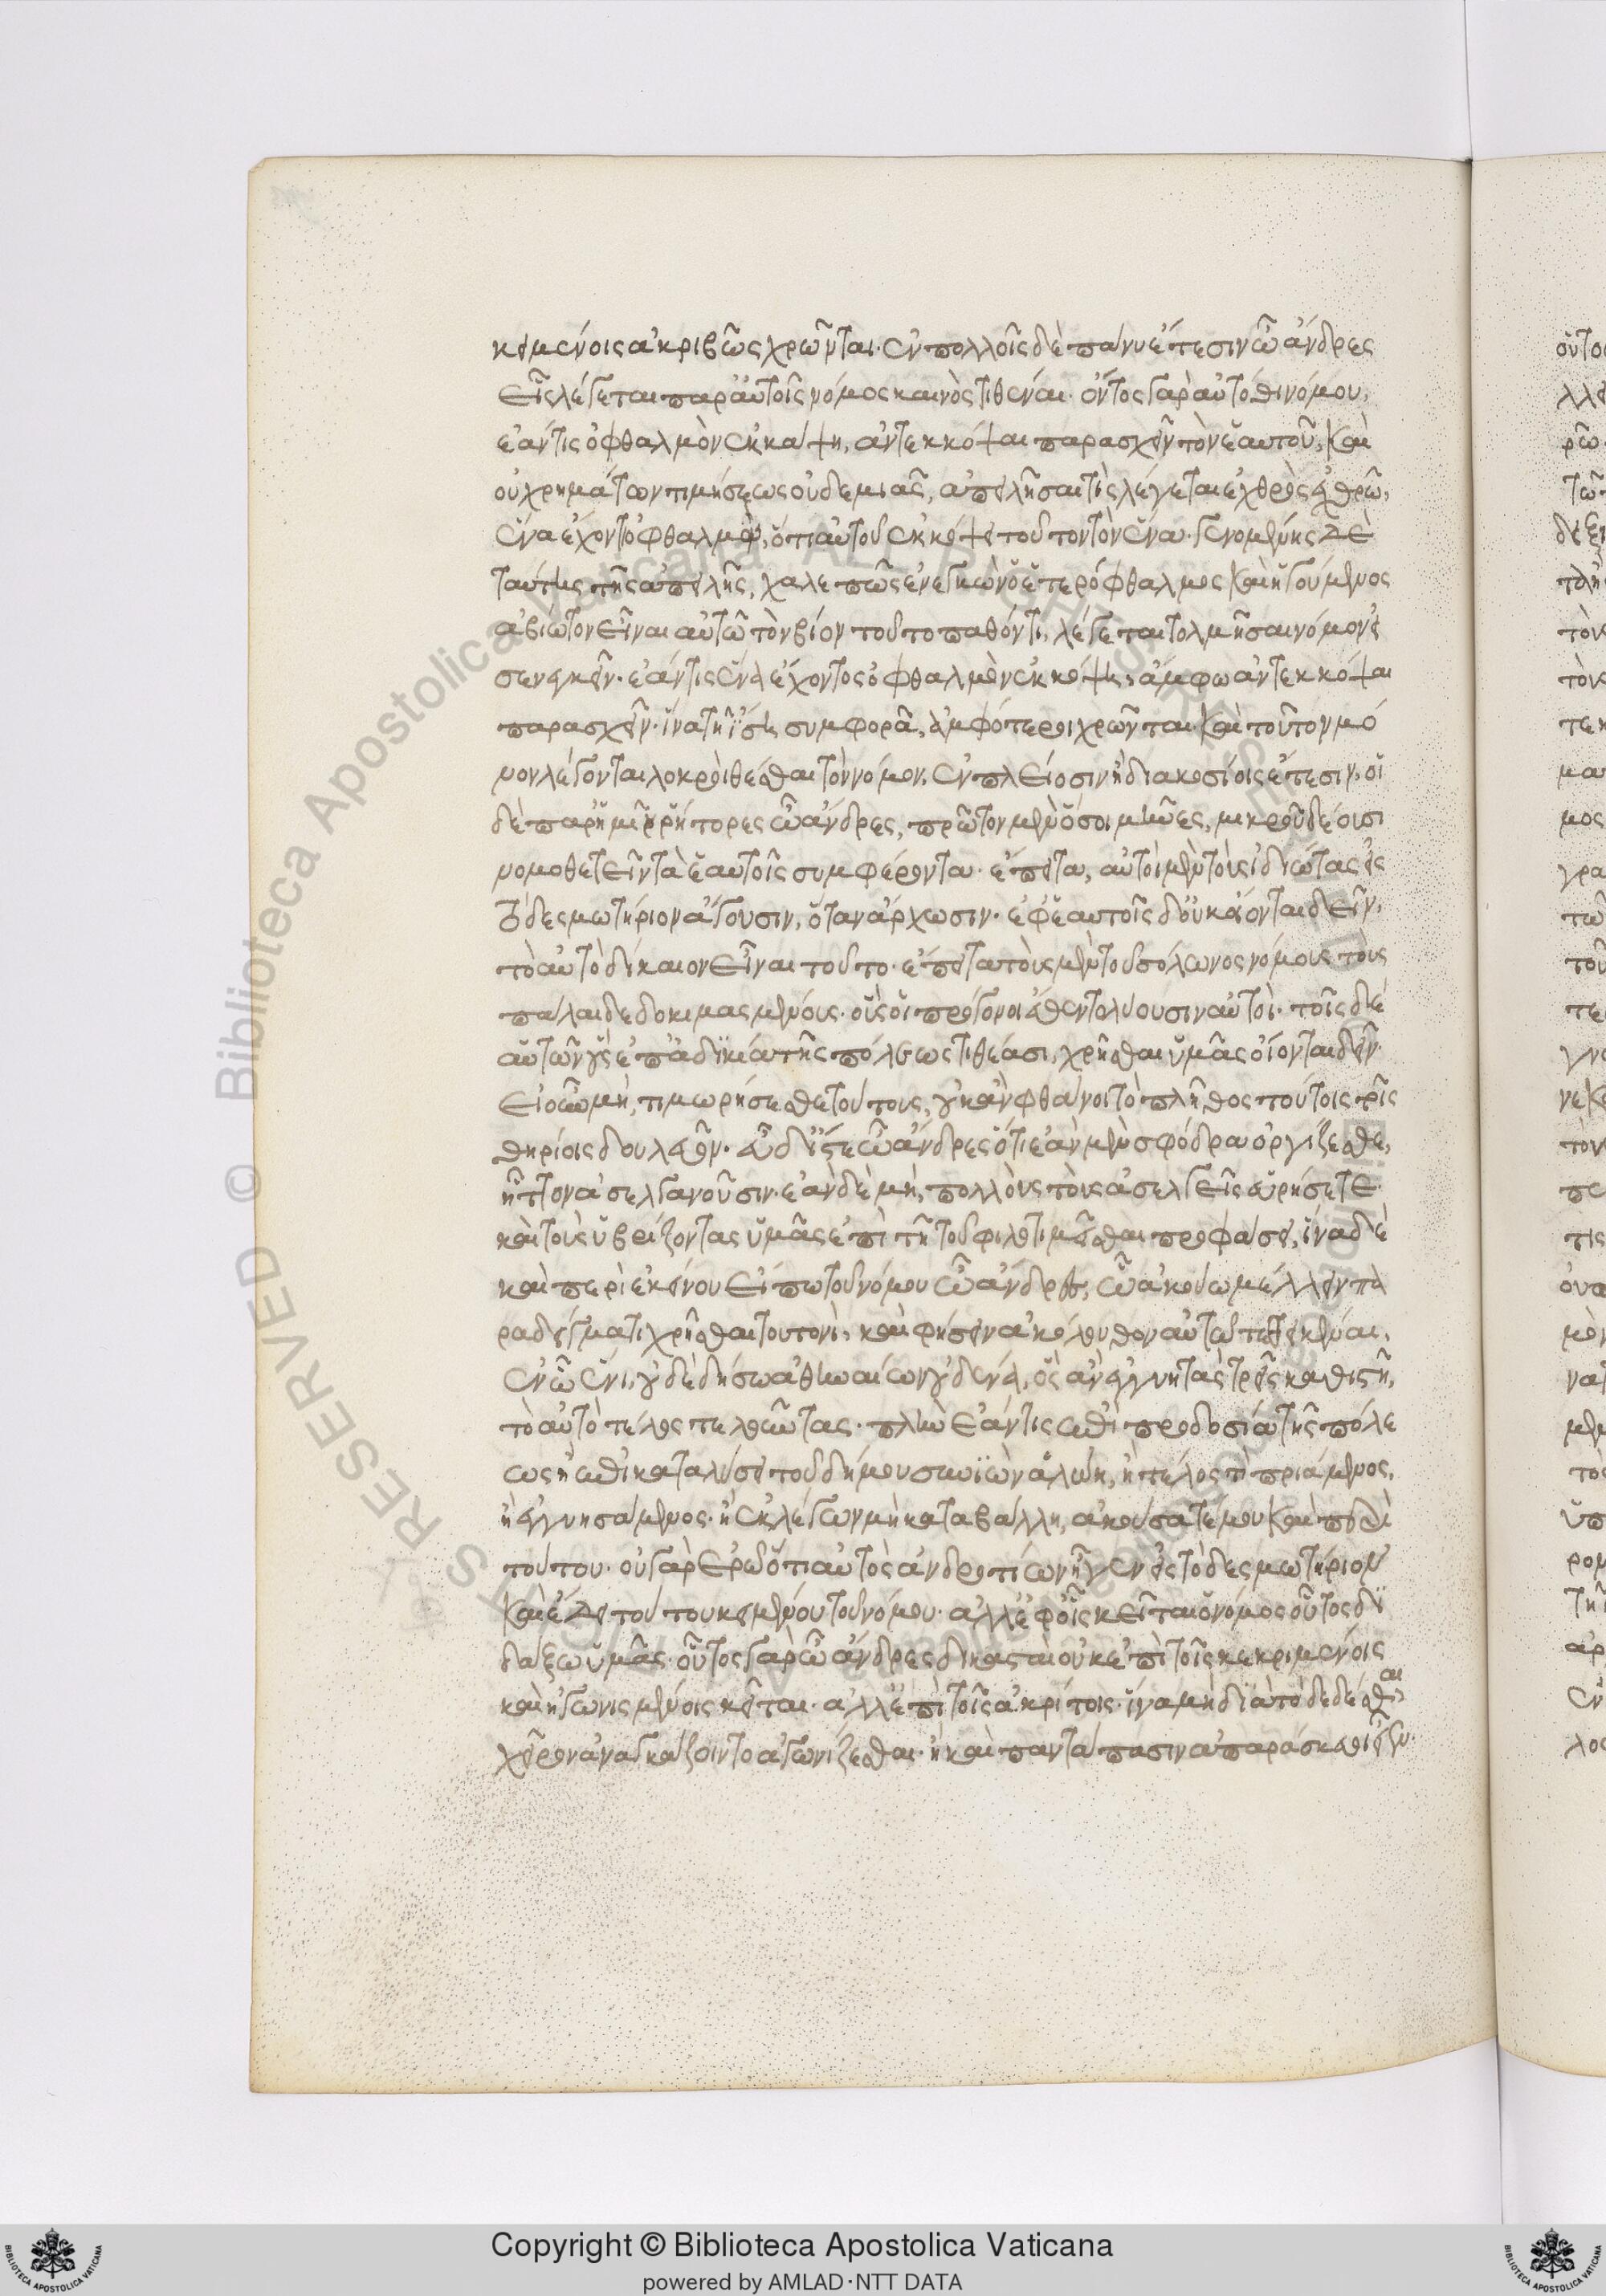 κειμένοις ἀκριβῶς χρῶνται. ἐν πολλοῖς δὲ πάνυ ἔτεσιν ὦ ἄνδρες
εἷς λέγεται παρ' αὐτοῖς νόμος καινὸς τιθέναι. ὄντος γὰρ αὐτόθι νόμου,
ἐάν τις ὀφθαλμὸν ἐκκόψη, ἀντεκκόψαι παρασχεῖν τὸν ἑαυτοῦ, καὶ
οὐ χρημάτων τιμήσεως οὐδεμιᾶς, ἀπειλῆσαι τὶς λέγεται ἐχθρὸς ἐχθρῶ,
ἕνα ἔχοντ' ὀφθαλμὸν, ὅτι αὐτοῦ ἐκκόψει τοῦτον τὸν ἕνα. γενομένης δὲ
ταύτης τῆς ἀπειλῆς, χαλεπῶς ἐνεγκὼν ὁ ἑτερόφθαλμος καὶ ἡγούμενος
ἀβίωτον εἶναι αὐτῶ τὸν βίον τοῦτο παθόντι, λέγεται τολμῆσαι νόμον εἰ
σενεγκεῖν. ἐάν τις ἕνα ἔχοντος ὀφθαλμὸν ἐκκόψη, ἄμφω ἀντεκκόψαι
παρασχεῖν. ἵνα τῆ ἴση συμφορᾶ, ἀμφότεροι χρῶνται. καὶ τοῦτον μό
νον λέγονται λοκροὶ θέσθαι τὸν νόμον, ἐν πλείοσιν ἢ διακοσίοις ἔτεσιν, οἱ
δὲ παρ' ἡμῖν ῥήτορες ὦ ἄνδρες, πρῶτον μὲν ὅσοι μῆνες, μικροῦ δέουσι
νομοθετεῖν τὰ ἑαυτοῖς συμφέροντα. ἔπειτα, αὐτοὶ μὲν τοὺς ἰδιώτας εἰς
τὸ δεσμωτήριον ἄγουσιν, ὅταν ἄρχωσιν. ἐφ' ἑαυτοῖς δ' οὐκ οἴονται δεῖν,
τὸ αὐτὸ δίκαιον εἶναι τοῦτο. ἔπειτα τοὺς μὲν τοῦ σόλωνος νόμους τοὺς
πάλαι δεδοκιμασμένους. οὓς οἱ πρόγονοι ἔθεντο λύουσιν αὐτοὶ. τοῖς δὲ
αὑτῶν οὓς ἐπ' ἀδικία τῆς πόλεως τιθέασι, χρῆσθαι ὑμᾶς οἴονται δεῖν.
εἰ οὖν μὴ, τιμωρήσεσθε τούτους, οὐκ ἂν φθάνοι τὸ πλῆθος τούτοις τοῖς
θηρίοις δουλεῦον. εὖ δ' ἴστε ὦ ἄνδρες ὅτι ἐὰν μὲν σφόδρα ὀργίζεσθε,
ἧττον ἀσελγανοῦσιν. ἐὰν δὲ μὴ, πολλοὺς τοὺς ἀσελγεῖς εὑρήσετε.
καὶ τοὺς ὑβρίζοντας ὑμᾶς ἐπὶ τῆ τοῦ φιλοτιμεῖσθαι προφάσει, ἵνα δὲ
καὶ περὶ ἐκείνου εἴπω τοῦ νόμου ὦ ἄνδρες, ὧ ἀκούω μέλλειν πα
ραδείγματι χρῆσθαι τουτονὶ, καὶ φήσειν ἀκόλουθον αὐτῶ τεθεικέναι,
ἐν ὧ ἔνι, οὐδὲ δήσω ἀθηναίων οὐδένα, ὃς ἂν ἐγγυητὰς τρεῖς καθιστῆ,
τὸ αὐτὸ τέλος τελοῦντας. πλὴν ἐάν τις ἐπὶ προδοσία τῆς πόλε
ως ἢ ἐπὶ καταλύσει τοῦ δήμου συνϊὼν ἁλώη, ἢ τέλος τὶ πριάμενος,
ἢ ἐγγυησάμενος. ἢ ἐκλέγων μὴ καταβάλλη, ἀκούσατέ μου καὶ περὶ
τούτου. οὐ γὰρ ἐρῶ ὅτι αὐτὸς ἀνδροτίων ἦγεν εἰς τὸ δεσμωτήριον
καὶ ἔδει τούτου κειμένου τοῦ νόμου. ἀλλ' ἐφ' οἷς κεῖται ὁ νόμος οὗτος δι
δάξω ὑμᾶς. οὗτος γὰρ ὦ ἄνδρες δικασταὶ οὐκ ἐπὶ τοῖς κεκριμένοις
καὶ ἠγωνισμένοις κεῖται. ἀλλ' ἐπὶ τοῖς ἀκρίτοις. ἵνα μὴ διὰ τὸ δεδέσθαι
χεῖρον ἀναγκάζοιντο ἀγωνίζεσθαι. ἢ καὶ παντάπασιν ἀπαράσκευοι εἶεν.